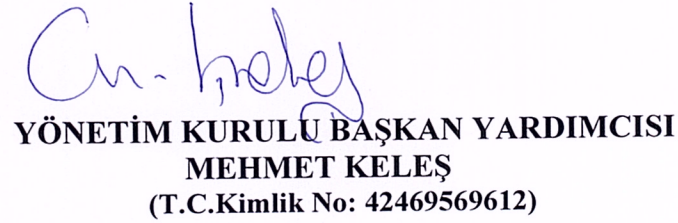 YÖNETİM KURULU BAŞKAN YARDIMCISI
MEHMET KELEŞ
(T.C.Kimlik No: 42469569612)